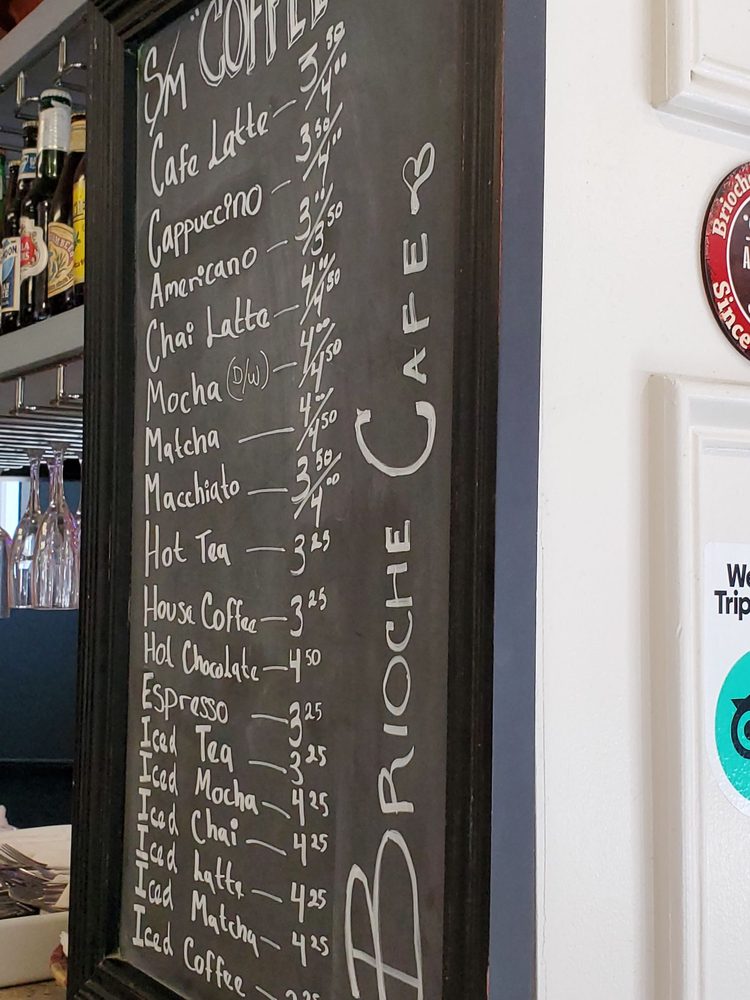 S/M "COFFEE
Cafe Latte — 3.50/4.00
Cappuccino — 3.50/4.00
Americano — 3.00/3.50
Chai Latte — 4.00/4.50
Mocha (D/W) — 4.00/4.50
Matcha — 4.00/4.50
Macchiato — 3.50/4.00
Hot Tea — 3.25
House Coffee — 3.25
Hot Chocolate — 4.50
Espresso — 3.25
Iced Tea — 3.25
Iced Mocha — 4.25
Iced Chai — 4.25
Iced Latte — 4.25
Iced Matcha — 4.25
Iced Coffee —
BRIOCHE CAFE
Brioche
Since
We
Trip